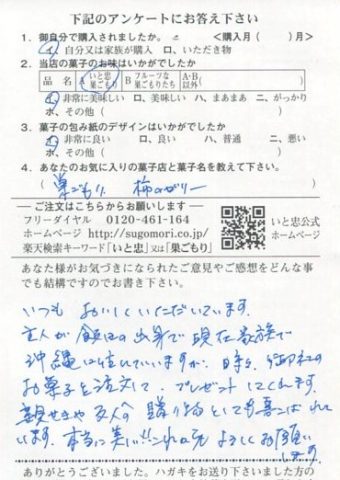 下記のアンケートにお答え下さい
1. 御自分で購入されましたか。 <購入月( )月>
イ、自分又は家族が購入 ロ、いただき物
2. 当店の菓子のお味はいかがでしたか
品名 A いと忠巣ごもり B フルーツな巣ごもりたち A・B以外( )
イ、非常に美味しい ロ、美味しい ハ、まあまあ ニ、がっかり
ホ、その他( )
3. 菓子の包み紙のデザインはいかがでしたか
イ、非常に良い ロ、良い ハ、普通 ニ、悪い
ホ、その他( )
4. あなたのお気に入りの菓子店と菓子名を教えて下さい。
( 巣ごもり 柿のゼリー )
ご注文はこちらからお願いします
フリーダイヤル 0120-461-164
ホームページ http://sugomori.co.jp/
楽天検索キーワード「いと忠」又は「巣ごもり」
いと忠公式
ホームページ
あなた様がお気づきになられたご意見やご感想をどんな事
でも結構ですのでお書き下さい。
いつも おいしくいただいています。
主人が飯田の出身で現在家族で
沖縄に住んでいますが、時々、御社の
お菓子を注文して、プレゼントしてくれます。
親せきや友人への贈り物としても喜ばれて
います。本当に美しい!!これからも よろしくお願い
します。
ありがとうございました。ハガキをお送り下さいました方の